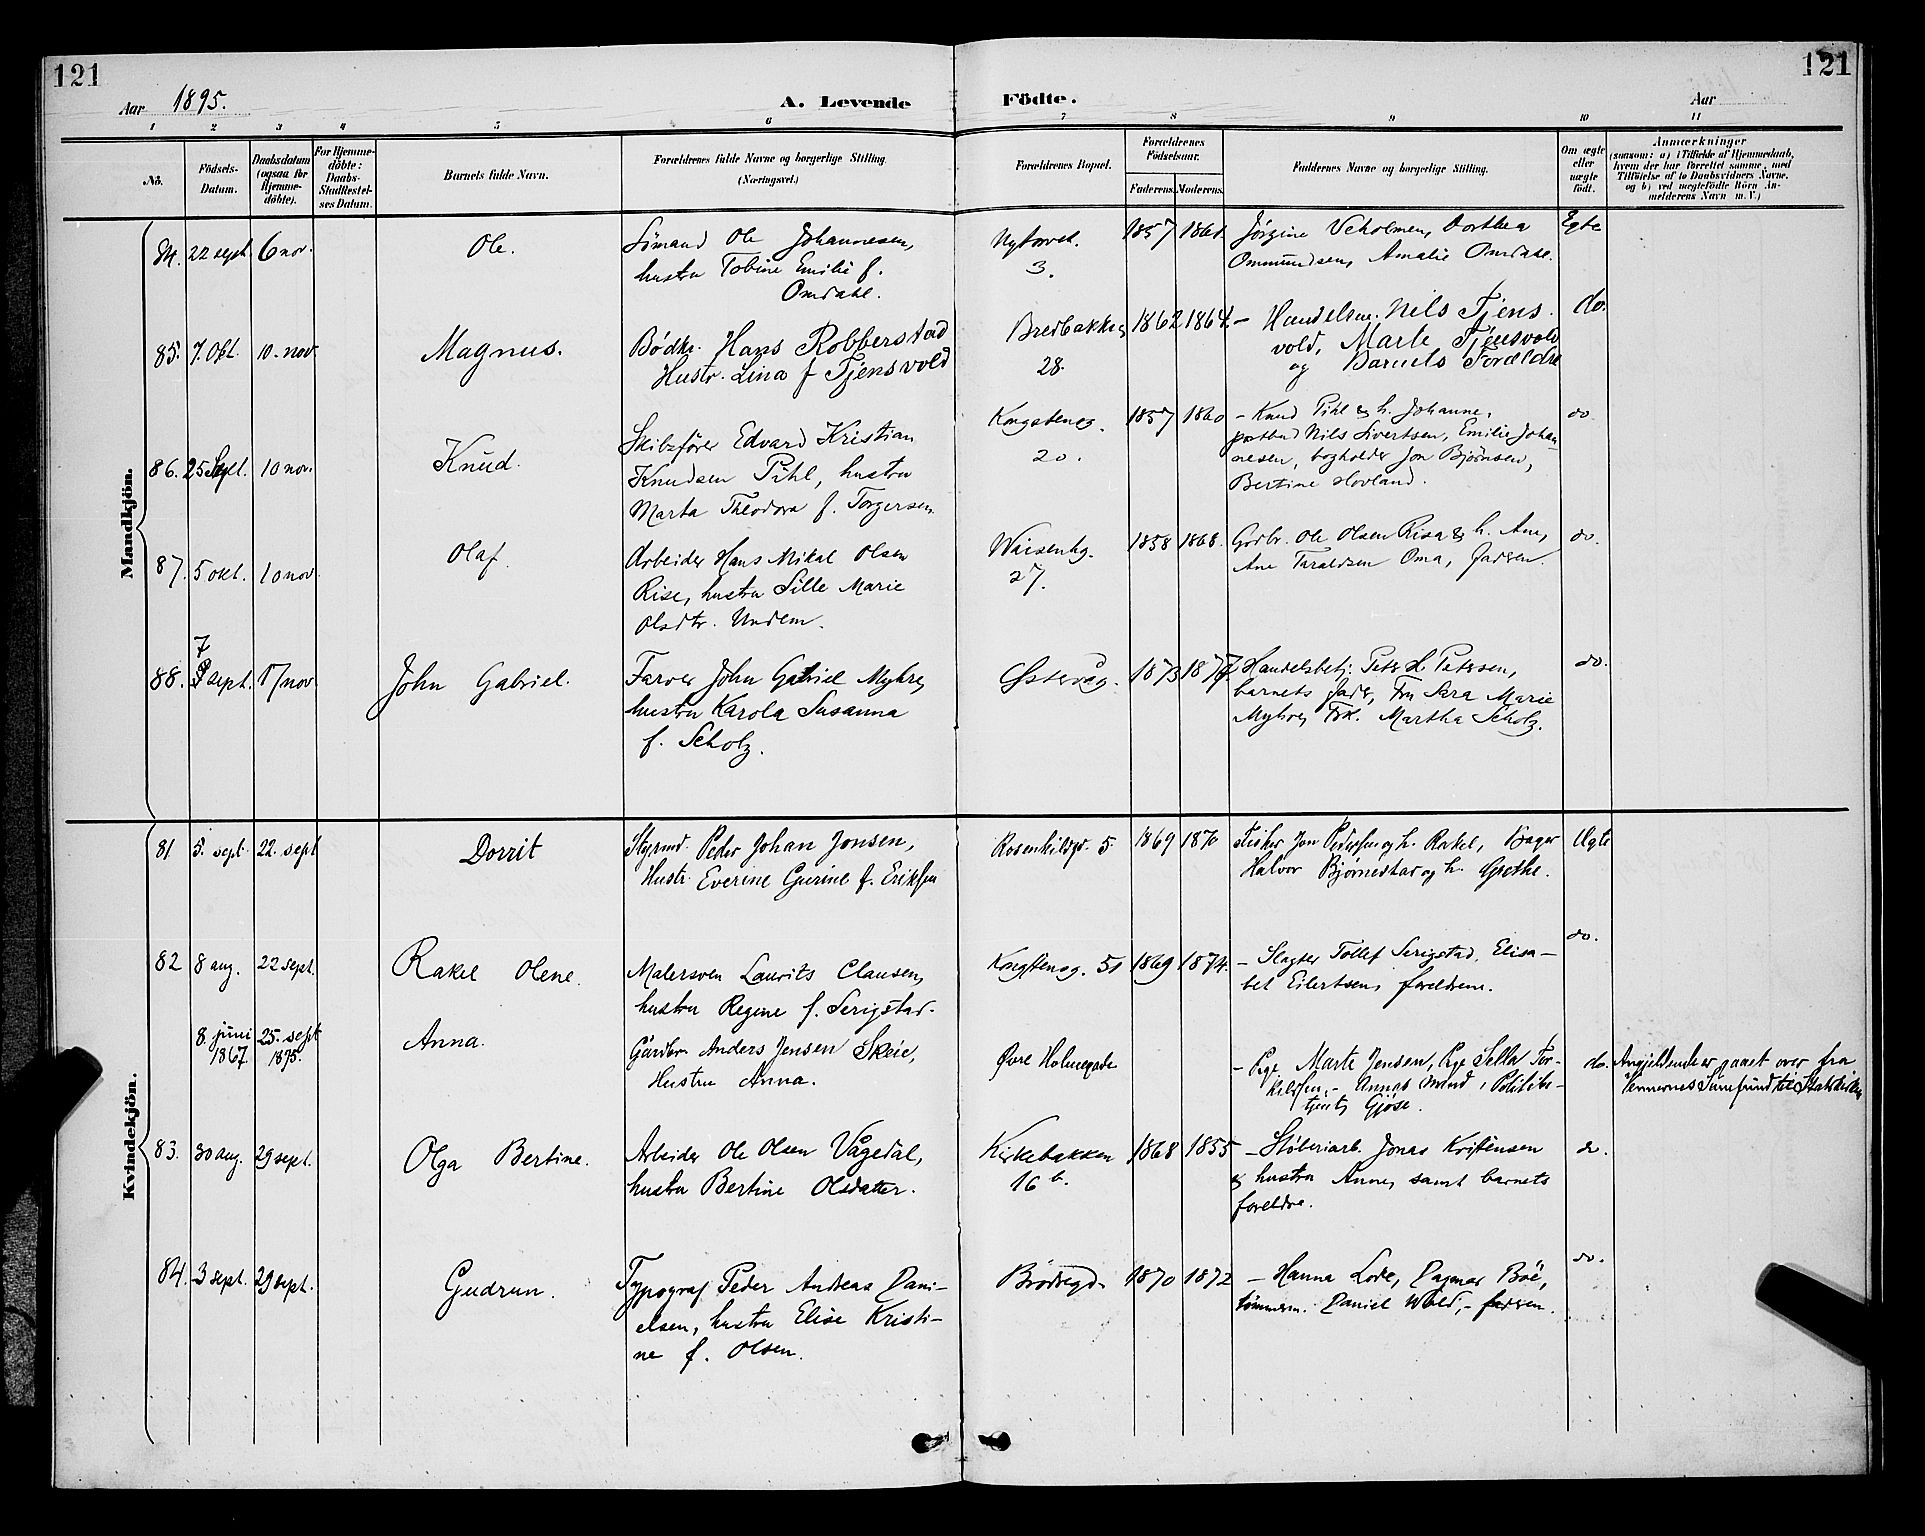 121
121
Aar 1895.
A. Levende
Födte.
Aar
1 2 3 4 5 6 7 8 9 10 11
No.
Födsels-
Datum.
Daabsdatum
(ogsaa for
Hjemme-
döbte).
For Hjemme-
döbte:
Daabs-
Stadfæstel-
ses Datum.
Barnets fulde Navn.
Forældrenes fulde Navne og borgerlige Stilling.
(Næringsvei.)
Forældrenes Bopæl.
Forældrenes
Födselsaar.
Faderens. Moderens.
Faddernes Navne og borgerlige Stilling.
Om ægte
eller
uægte
födt.
Anmærkninger
(saasom: a) i Tilfælde af Hjemmedaab,
hvem der har forrettet samme, med
Tilföielse af to Daabsvidners Navne,
og b) ved uægtefödte Börn An-
melderens Navn m. V.)
Mandkjön.
84. 22 sept 6 nov. Ole.
Sömand Ole Johannesen,
hustru Tobine Emilie f.
Omdahl.
Nytorvet.
3.
1857 1861.
Jörgine Veholmen, Dorthea
Ommundsen, Amalie Omdahl.
Egte
85. 7. Okt. 10. nov. Magnus.
Bødkr. Hans Robberstad
Hustr. Lina f Tjensvold
Bredbakken
28.
1862 1864.
- Handelsm. Nils Tjens-
vold, Marte Tjensvold
og Barnets Forældre
do.
86. 25 Sept. 10 nov. Knud.
Skibsfører Edvard Kristian
Knudsen Pihl, hustru
Marta Theodora f. Torgersen.
Kongstensg.
20.
1857 1860
- Knud Pihl & h. Johanne,
postbud Nils Sivertsen, Emilie Johan-
nesen, bogholder Jon Bjørnsen,
Bertine Hovland.
do.
87. 5 okt. 10 nov. Olaf.
Arbeider Hans Mikal Olsen
Rise, hustru Sille Marie
Olsdtr. Undem.
Waisenhg.
27.
1858 1868.
Grdbr. Ole Olsen Risa & h. Ane,
Ane Taraldsen Oma, faderen.
do.
88. 7 sept. 17 nov. John Gabriel.
Farver John Gabriel Myhre,
hustru Karola Susanna
f. Scholz.
Østervåg.
1873 1877
Handelsbetj. Peter H. Petersen,
barnets fader, Fru Sara Marie
Myhre, Frk. Martha Scholz.
do.
Kvindekjön.
81 5. sept. 22. sept Dorrit
Styrmd. Peder Johan Jonsen,
Hustr. Everine Gurine f. Eriksen
Rosenkildgt. 5.
1869 1870
Fisker Jon Pedersen og h. Rakel, Bager
Halvor Bjørnestar og h. Grethe.
Ægte
82 8 aug. 22 sept. Rakel Olene.
Malersven Laurits Clausen,
hustru Regine f. Serigstad.
Kongstensg. 51
1869 1874.
- Slagter Tollef Serigstad, Elisa-
bet Eilertsen, foreldrene.
do.
8. juni
1867. 25. sept
1895. Anna.
Gårdbr. Anders Jensen Skeie,
Hustru Anna.
Øvre Holmegade
- Pige Marte Jensen, Pige Sella Tor-
kilsen, - Annas Mand, Politibe-
tjent, Gjøse.
do.
Angjeldende er gaaet over fra
Vennernes Samfund til Statskirken
83. 30 aug. 29 sept. Olga Bertine.
Arbeider Ole Olsen Vågedal,
hustru Bertine Olsdatter.
Kirkebakken
16 b.
1868 1855
- Støberiarb. Jonas Kristensen
& hustru Anne, samt barnets
foreldre.
do.
84. 3 sept. 29 sept. Gudrun.
Typograf Peder Andreas Dani-
elsen, hustru Elise Kristi-
ne f. Olsen.
Brødregd.
1870 1872
- Hanna Lode, Dagmar Bøe,
tömmerm. Daniel Wold, - faderen.
do.